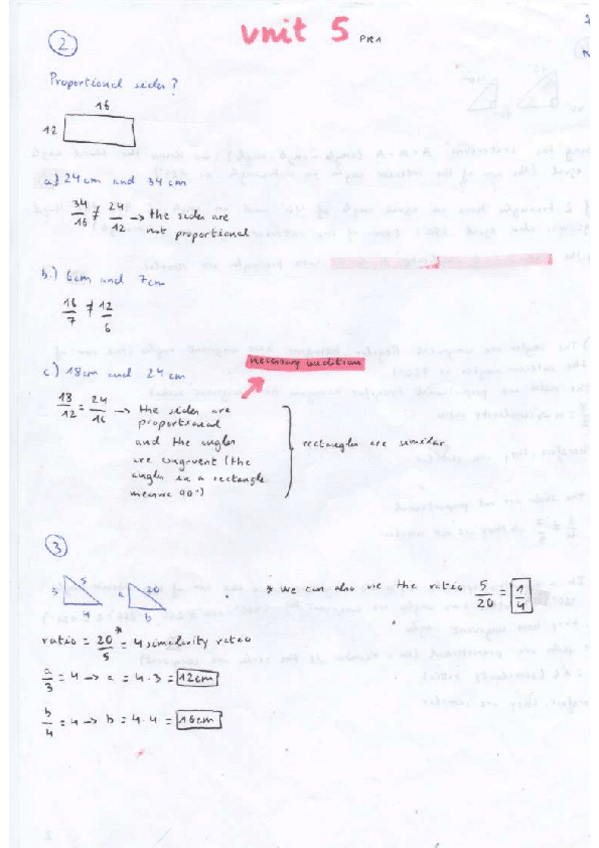 Unit 5 PRA
2
Proportional sides?
16
12
a) 24cm and 34cm
34/16 ≠ 24/12 → the sides are
not proportional
b.) 6cm and 7cm
16/7 ≠ 12/6
necessary condition
c.) 18cm and 24cm
18/12 = 24/16 → the sides are
proportional
and the angles
are congruent (the
angles in a rectangle
measure 90°)
rectangles are similar
3
3 5 4
a 20 b
* we can also use the ratio 5/20 = 1/4
ratio = 20/5 * = 4 similarity ratio
a/3 = 4 → a = 4·3 = 12cm
b/4 = 4 → b = 4·4 = 16cm